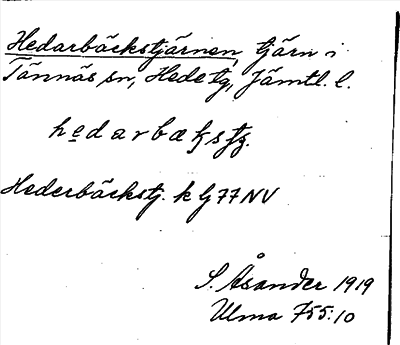 Hedarbäckstjärnen, tjärn i
Tännäs sn, Hede tg, Jämtl. l.
Hederbäckstj. k lj 77 NV
S. Åsander 1919
Ulma 755:10